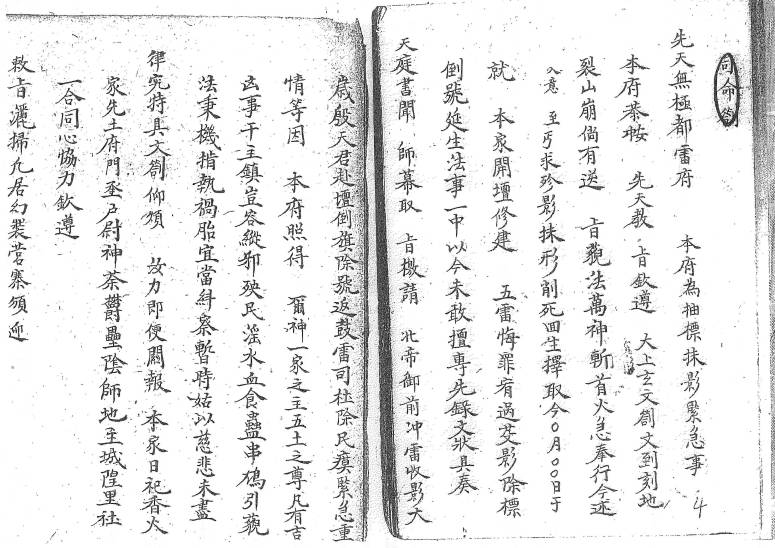 司命劄
先天無極都雷府　本府為抽標抹影緊急事
本府恭按　先天敕　旨欽遵　太上玄文劄文到刻地
裂山崩倘有送　旨藐法萬神斬首火急奉行今述
入意　至丐求殄影抹形削死回生擇取今〇月〇〇日于
就　本家開壇修建　五雷悔罪宥過芟影除標
倒號延生法事一中以今未敢擅專先錄文狀具奏
天庭書聞　師幕取　旨檄請　北帝御前冲雷收影大
4
歲殷天君赴壇倒旗除號返鼓雷司杜除民瘼緊急重
情等因　本府照得　爾神一家之主五土之尊凡有吉
凶事干主鎮豈容縱邪殃民滛水血食蠱串鴆引藐
法秉機揹執禍胎宜當糾察暫時姑以慈悲未盡
律究特具文劄仰煩　故力即便關報　本家日祀香火
家先土府門丞戶尉神荼欝壘陰師地主城隍里社
一合同心恊力欽遵
敕旨灑掃九居幻裝营寨煩迎